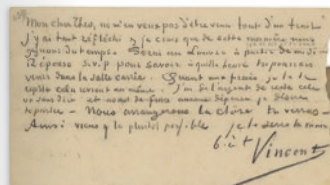 Mon cher Theo, ne m'en veux pas d'être venu tout d'un trait.
J'y ai tant réfléchi & je crois que de cette manière nous
gagnons du temps. Serai au Louvre à partir de midi
Réponse s.v.p. pour savoir à quelle heure tu pourrais
venir dans la salle carrée. Quant aux frais je te le
répète cela revient au même. J'ai de l'argent de reste cela
va sans dire et avant de faire aucune dépense je désire
te parler – Nous arrangerons la chose tu verras –
Ainsi viens y le plus tôt possible
je te serre la main
b. à t.
Vincent